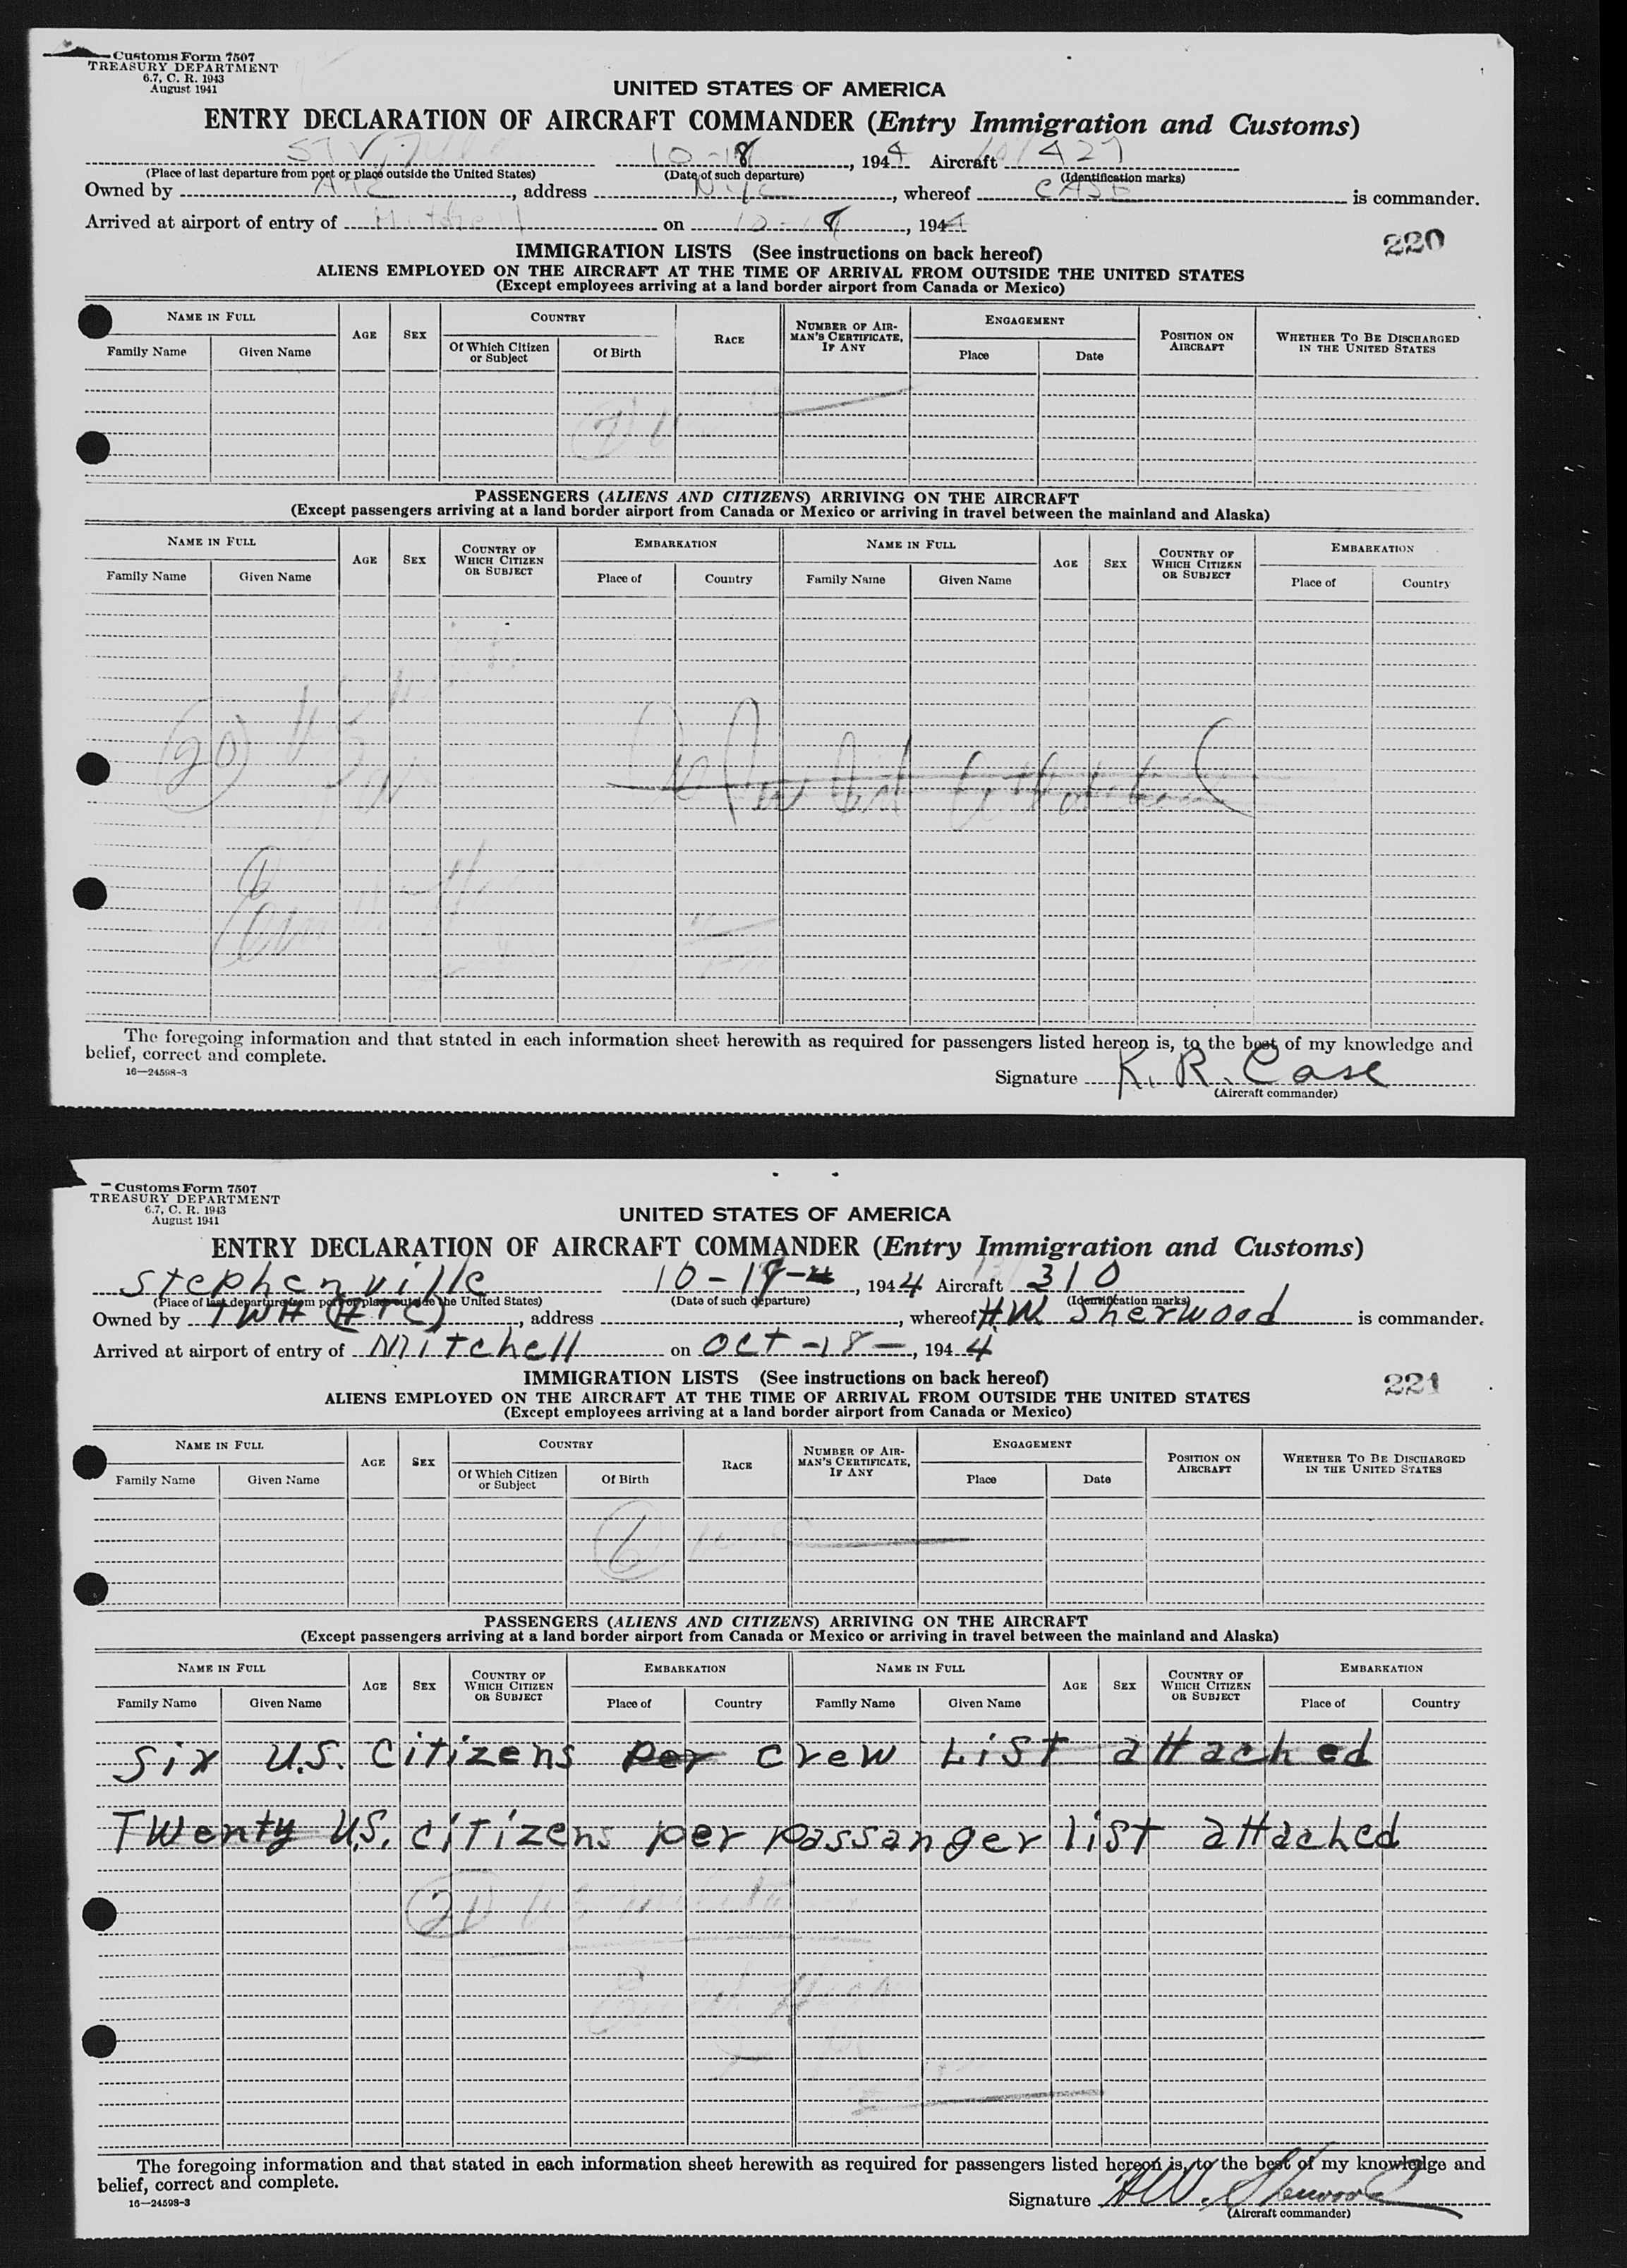 Customs Form 7507
TREASURY DEPARTMENT
6.7, C. R. 1943
August 1941
UNITED STATES OF AMERICA
ENTRY DECLARATION OF AIRCRAFT COMMANDER (Entry Immigration and Customs)
10-18, 1944 Aircraft 427
(Place of last departure from port or place outside the United States) (Date of such departure) (Identification marks)
Owned by , address NYC, whereof CASE is commander.
Arrived at airport of entry of Mitchell on 10-18, 1944
IMMIGRATION LISTS (See instructions on back hereof)
220
ALIENS EMPLOYED ON THE AIRCRAFT AT THE TIME OF ARRIVAL FROM OUTSIDE THE UNITED STATES
(Except employees arriving at a land border airport from Canada or Mexico)
NAME IN FULL AGE SEX COUNTRY RACE NUMBER OF AIRMAN'S CERTIFICATE, IF ANY ENGAGEMENT POSITION ON AIRCRAFT WHETHER TO BE DISCHARGED IN THE UNITED STATES
Family Name Given Name Of Which Citizen or Subject Of Birth Place Date
PASSENGERS (ALIENS AND CITIZENS) ARRIVING ON THE AIRCRAFT
(Except passengers arriving at a land border airport from Canada or Mexico or arriving in travel between the mainland and Alaska)
NAME IN FULL AGE SEX COUNTRY OF WHICH CITIZEN OR SUBJECT EMBARKATION NAME IN FULL AGE SEX COUNTRY OF WHICH CITIZEN OR SUBJECT EMBARKATION
Family Name Given Name Place of Country Family Name Given Name Place of Country
20
The foregoing information and that stated in each information sheet herewith as required for passengers listed hereon is, to the best of my knowledge and
belief, correct and complete.
16—24598-3
Signature K. R. Case
(Aircraft commander)
Customs Form 7507
TREASURY DEPARTMENT
6.7, C. R. 1943
August 1941
UNITED STATES OF AMERICA
ENTRY DECLARATION OF AIRCRAFT COMMANDER (Entry Immigration and Customs)
Stephenville 10-18-4, 1944 Aircraft 310
(Place of last departure from port or place outside the United States) (Date of such departure) (Identification marks)
Owned by TWA (ATC), address , whereof H.W. Sherwood is commander.
Arrived at airport of entry of Mitchell on Oct-18-, 1944
IMMIGRATION LISTS (See instructions on back hereof)
221
ALIENS EMPLOYED ON THE AIRCRAFT AT THE TIME OF ARRIVAL FROM OUTSIDE THE UNITED STATES
(Except employees arriving at a land border airport from Canada or Mexico)
NAME IN FULL AGE SEX COUNTRY RACE NUMBER OF AIRMAN'S CERTIFICATE, IF ANY ENGAGEMENT POSITION ON AIRCRAFT WHETHER TO BE DISCHARGED IN THE UNITED STATES
Family Name Given Name Of Which Citizen or Subject Of Birth Place Date
6
PASSENGERS (ALIENS AND CITIZENS) ARRIVING ON THE AIRCRAFT
(Except passengers arriving at a land border airport from Canada or Mexico or arriving in travel between the mainland and Alaska)
NAME IN FULL AGE SEX COUNTRY OF WHICH CITIZEN OR SUBJECT EMBARKATION NAME IN FULL AGE SEX COUNTRY OF WHICH CITIZEN OR SUBJECT EMBARKATION
Family Name Given Name Place of Country Family Name Given Name Place of Country
Six U.S. Citizens per crew List attached
Twenty U.S. citizens per passanger list attached
The foregoing information and that stated in each information sheet herewith as required for passengers listed hereon is, to the best of my knowledge and
belief, correct and complete.
16—24598-3
Signature H.W. Sherwood
(Aircraft commander)